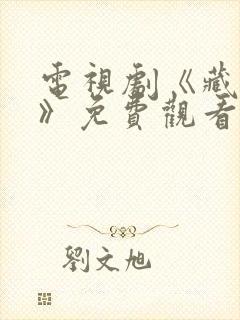 電視劇《藏
》免費觀看
劉文旭